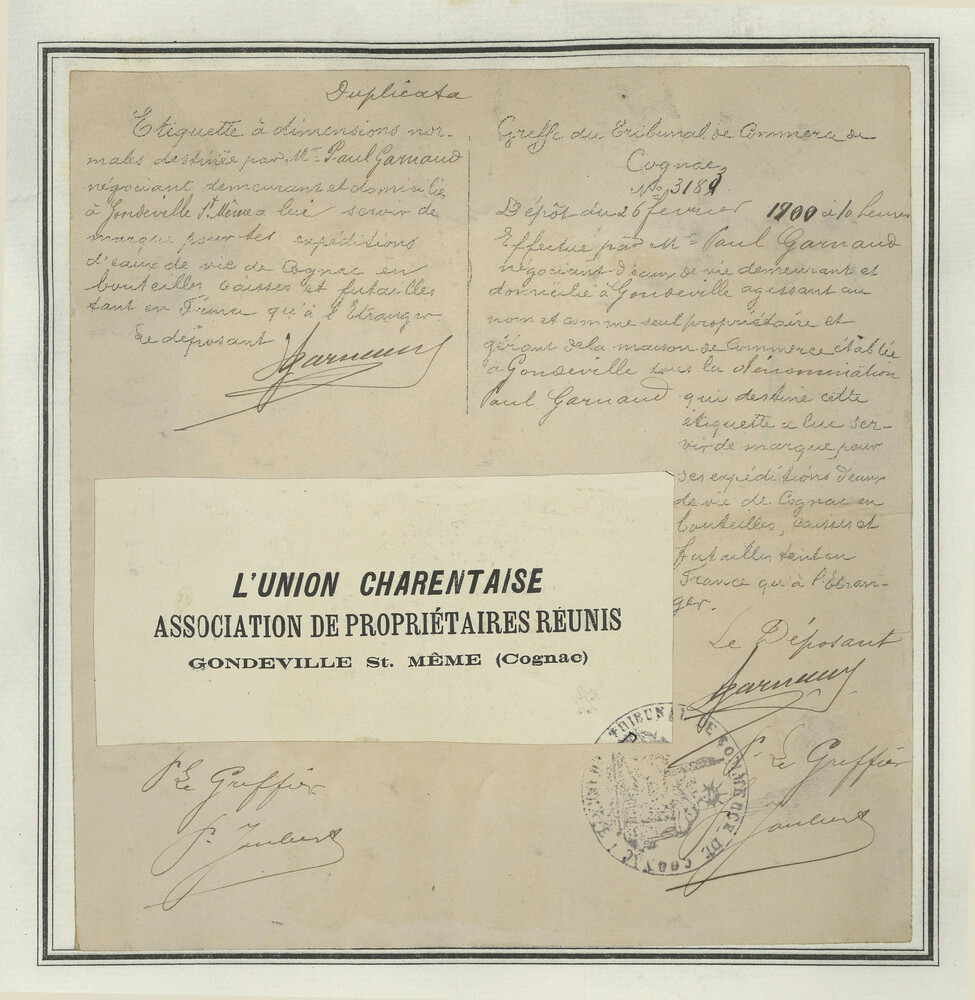 Duplicata
Etiquette à dimensions nor-
males destinée par Mr Paul Garnaud
négociant, demeurant et domicilié
à Gondeville St Même a lui servir de
marque pour ses expéditions
d'eaux de vie de Cognac en
bouteilles caisses et futailles
tant en France qu'à l'Etranger.
Le déposant
Garnaud
Greffe du Tribunal de Commerce de
Cognac,
No 3189
Dépôt du 26 février 1900 à 10 heures
Effectué par Mr Paul Garnaud
négociant d'eaux de vie demeurant et
domicilié à Gondeville agissant au
nom et comme seul propriétaire et
gérant de la maison de Commerce établie
à Gondeville sous la dénomination
Paul Garnaud qui destine cette
étiquette a lui ser-
vir de marque pour
ses expéditions d'eaux
de vie de Cognac en
bouteilles, caisses et
futailles tant en
France qu'à l'Etran-
ger.
Le Déposant
Garnaud
L'UNION CHARENTAISE
ASSOCIATION DE PROPRIÉTAIRES RÉUNIS
GONDEVILLE St. MÊME (Cognac)
P. Le Greffier
P. Joubert
P. Le Greffier
P. Joubert
TRIBUNAL DE COMMERCE DE COGNAC